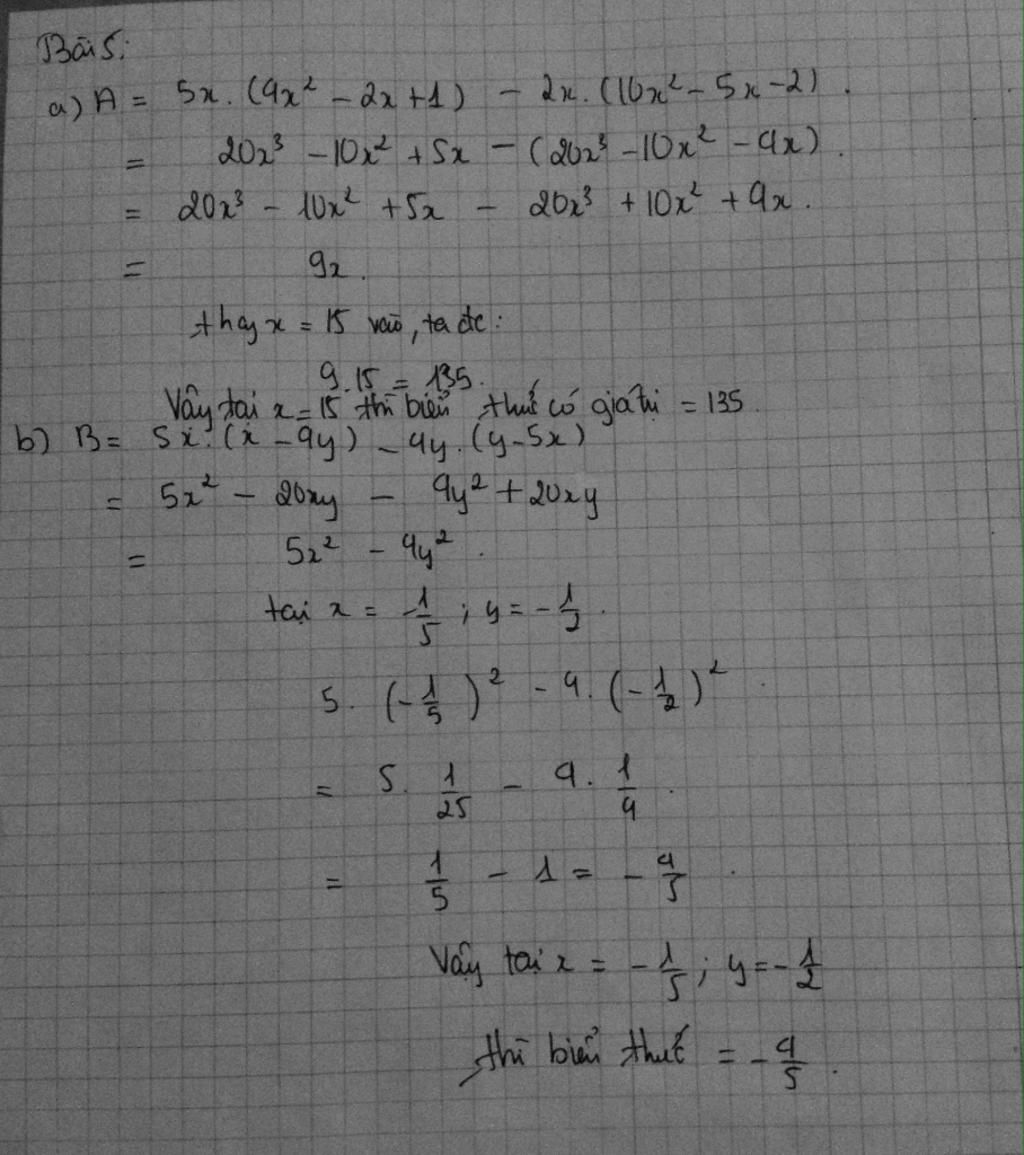 Bài 5:
a) A = 5x. (4x² - 2x + 1) - 2x. (10x² - 5x - 2).
= 20x³ - 10x² + 5x - (20x³ - 10x² - 4x).
= 20x³ - 10x² + 5x - 20x³ + 10x² + 4x.
= 9x.
thay x = 15 vào, ta đc:
9.15 = 135.
Vậy tại x = 15 thì biểu thức có giá trị = 135.
b) B = 5x. (x - 4y) - 4y. (y - 5x)
= 5x² - 20xy - 4y² + 20xy
= 5x² - 4y².
tại x = -1/5 ; y = -1/2.
5. (-1/5)² - 4. (-1/2)².
= 5. 1/25 - 4. 1/4.
= 1/5 - 1 = -4/5.
Vậy tại x = -1/5 ; y = -1/2
thì biểu thức = -4/5.